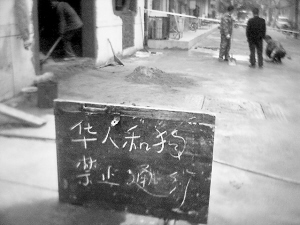 华人和狗
禁止通行